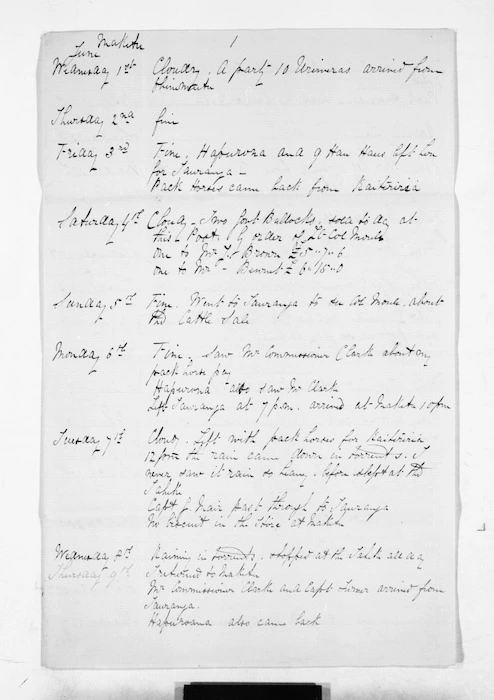 Maketu 1
June
Wednesday 1st Cloudy. A party 10 Uriweras arrived from
Ohinemutu
Thursday 2nd fine
Friday 3rd Fine, Hapurona and 9 Hau Haus left here
for Tauranga -
Pack Horses came back from Kaiteriria
Saturday 4th Cloudy - Two Govt Bullocks, sold to day at
this Post. By order of Lt Col Moule
one to Mr J.S Brown £5"7"6
one to Mr - Bennet £6"15"0
Sunday 5th Fine. Went to Tauranga to see Col Moule, about
the Cattle Sale
Monday 6th Fine, saw Mr Commissioner Clark about my
pack horse pay
Hapurona also saw Mr Clark
Left Tauranga at 7 pm. arrived at Maketu 10 pm
Tuesday 7th Cloudy. Left with pack horses for Kaiteriria
12 pm the rain came down in torrents. I
never saw it rain so heavy, before slept at the
Taheke
Capt G Mair past through to Tauranga
No Biscuit in the Store at Maketu
Wednesday 8th Raining in torrents. stopped at the Taheke all day
Thursday 9th I returned to Maketu
Mr Commissioner Clark and Capt Turner arrived from
Tauranga.
Hapurona also came back